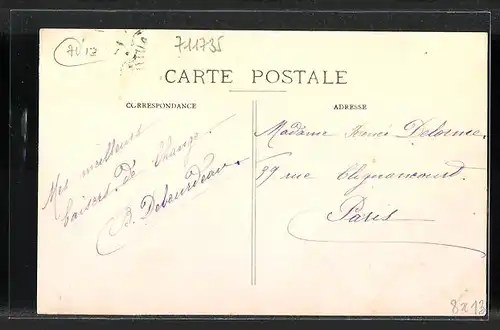 70 12
711735
CARTE POSTALE
CORRESPONDANCE
ADRESSE
Mes meilleurs
baisers de
B.
Madame Delorme
99 rue Clignancourt.
Paris
8x13